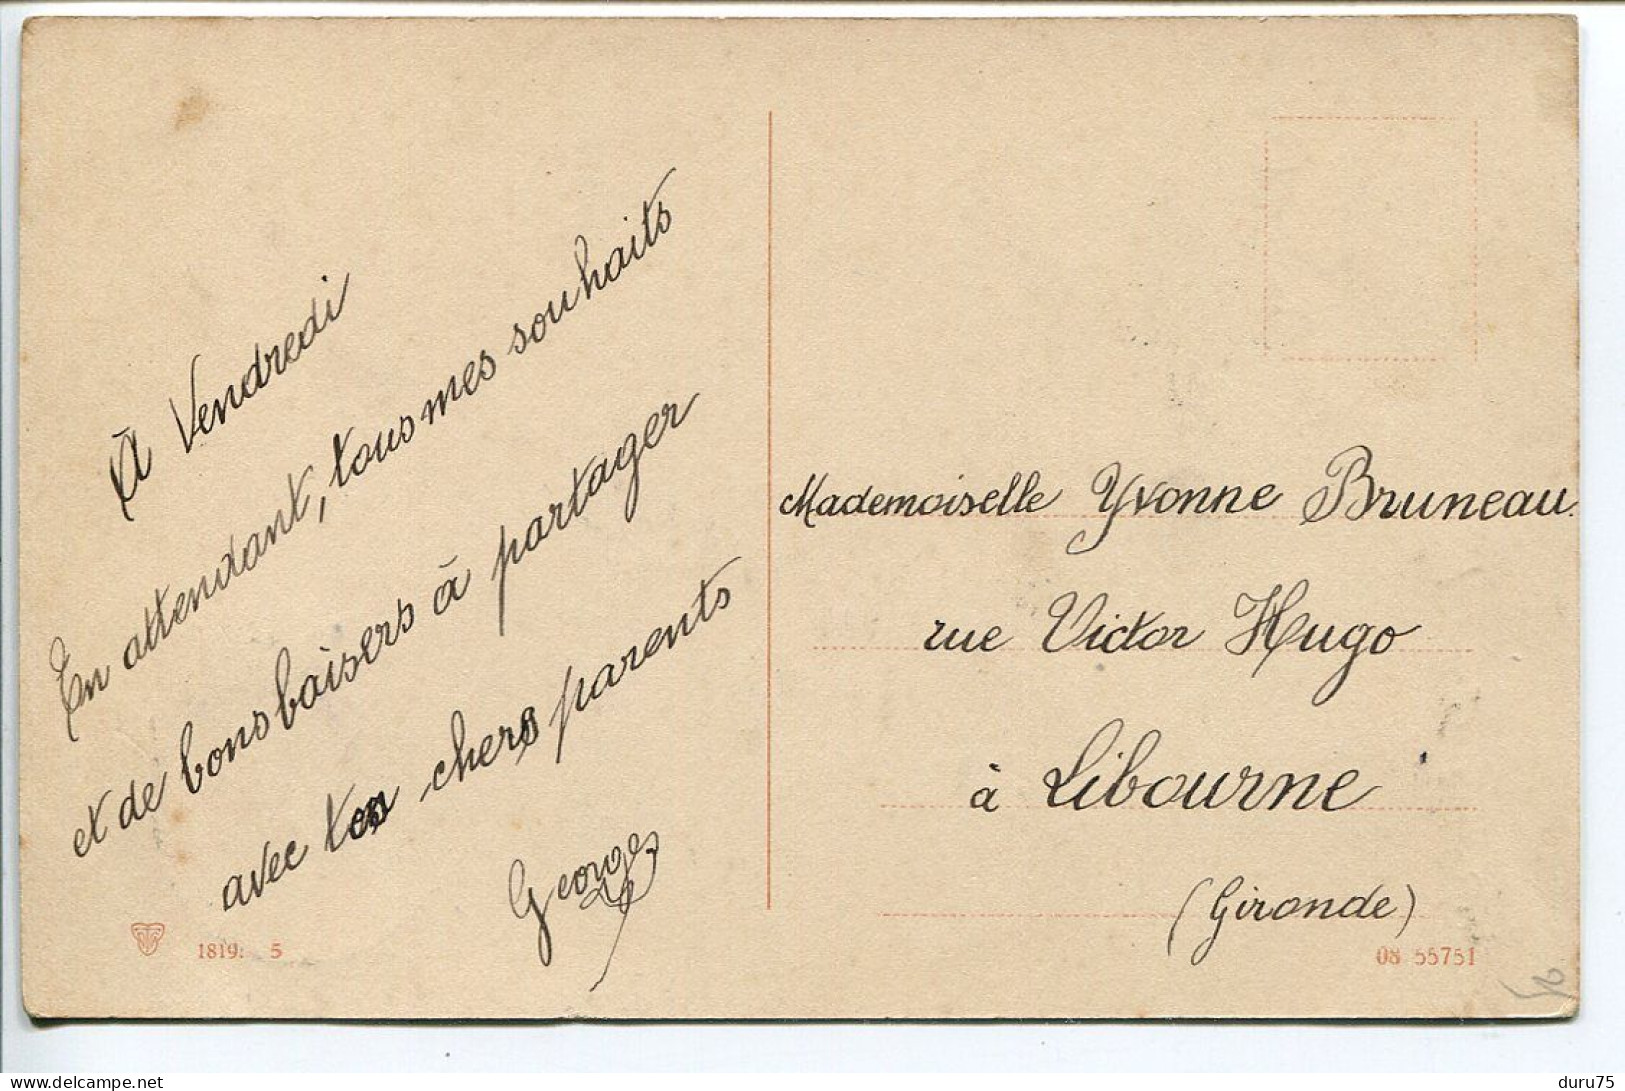 À Vendredi
En attendant, tous mes souhaits
et de bons baisers à partager
avec tes chers parents
Georges
1819: 5
Mademoiselle Yvonne Bruneau.
rue Victor Hugo
à Libourne
(Gironde)
08 55751
www.delcampe.net
duru75